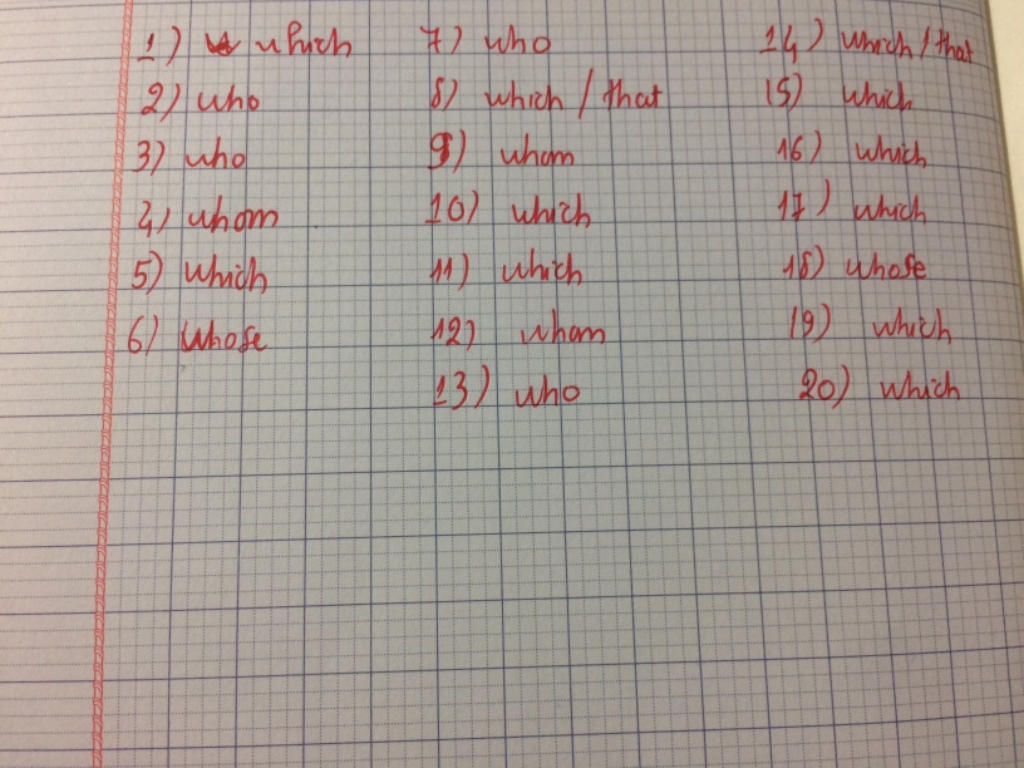 1) which
2) who
3) who
4) whom
5) which
6) whose
7) who
8) which / that
9) whom
10) which
11) which
12) whom
13) who
14) which / that
15) which
16) which
17) which
18) whose
19) which
20) which